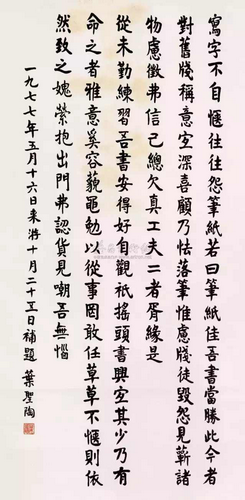 寫字不自愜往往怨筆紙若曰筆紙佳吾書當勝此今者
對舊牋稱意宜深喜顧乃怯落筆惟慮牋徒毀怨見蘄諸
物慮徵弗信己總欠真工夫二者胥緣是
從未勤練習吾書安得好自觀祇搖頭書興宜其少乃有
命之者雅意奚容藐黽勉以從事罔敢任草草不愜則依
然致之媿縈抱出門弗認貨見嘲吾無惱
一九七七年五月十六日来浩十月二十五日補題 葉聖陶